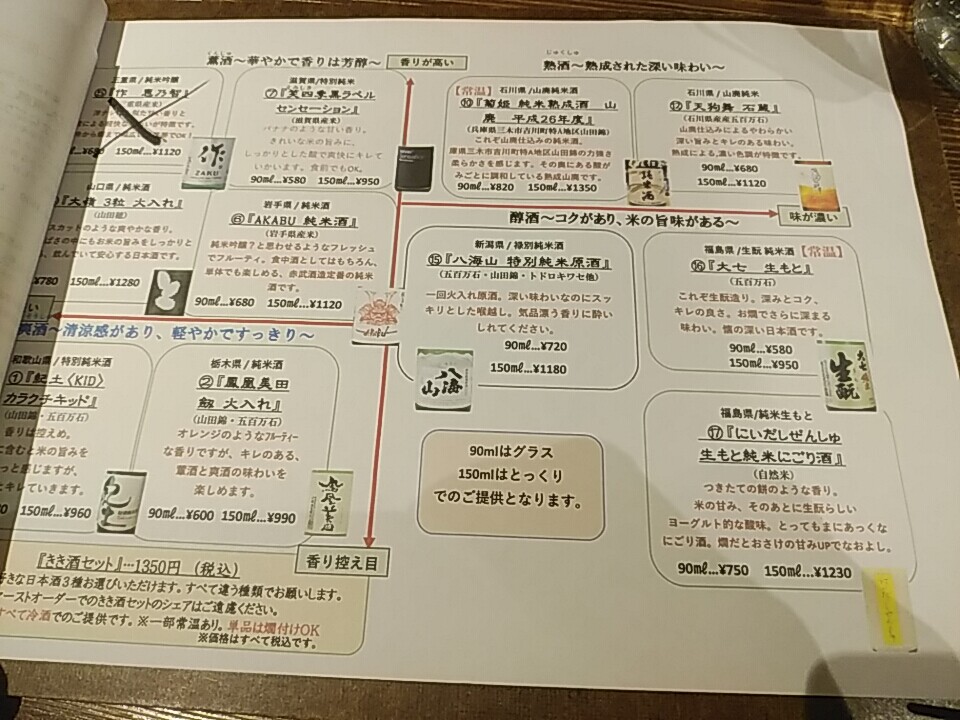 くんしゅ
薫酒~華やかで香りは芳醇~
香りが高い
じゅくしゅ
熟酒~熟成された深い味わい~
三重県/純米吟醸
⑮『作 恵乃智』
150㎖…¥1120
滋賀県/特別純米
⑦『笑四季黒ラベル
センセーション』
(滋賀県産米)
バナナのような甘い香り。
きれいな米の旨みに、
しっかりとした酸で爽快にキレて
いかいます。食前でもOK。
90㎖…¥580 150㎖…¥950
山口県/純米酒
『大嶺 3粒 火入れ』
(山田穂)
スカットのような爽やかな香り。
ばさの中にもお米の旨みをしっかりと
、飲んでいて安心する日本酒です。
¥780 150㎖…¥1280
岩手県/純米酒
⑥『AKABU 純米酒』
(岩手県産米)
純米吟醸?と思わせるようなフレッシュ
でフルーティ。食中酒としてはもちろん、
単体でも楽しめる、赤武酒造定番の純米
酒です。
90㎖…¥680 150㎖…¥1120
【常温】石川県/山廃純米
⑩『菊姫 純米熟成酒 山
廃 平成26年度』
(兵庫県三木市吉川町特A地区山田錦)
これぞ山廃仕込みの純米酒。
庫県三木市吉川町特A地区山田錦の力強さ
柔らかさを感じます。その奥にある酸が
みごとに調和している熟成山廃です。
90㎖…¥820 150㎖…¥1350
石川県/山廃純米
⑫『天狗舞 石蔵』
(石川県産五百万石)
山廃仕込みによるやわらかい
深い旨みとキレのある味わい。
熟成による、濃い色調が特徴です。
90㎖…¥680
150㎖…¥1120
味が濃い
醇酒~コクがあり、米の旨味がある~
新潟県/特別純米酒
⑮『八海山 特別純米原酒』
(五百万石・山田錦・トドロキワセ他)
一回火入れ原酒。深い味わいなのにスッ
キリとした喉越し。気品漂う香りに酔い
しれてください。
90㎖…¥720
150㎖…¥1180
福島県/生酛 純米酒【常温】
⑯『大七 生もと』
(五百万石)
これぞ生酛造り。深みとコク、
キレの良さ。お燗でさらに深まる
味わい。慎の深い日本酒です。
90㎖…¥580
150㎖…¥950
福島県/純米生もと
⑰『にいだしぜんしゅ
生もと純米にごり酒』
(自然米)
つきたての餅のような香り。
米の甘み、そのあとに生酛らしい
ヨーグルト的な酸味。とってもまにあっくな
にごり酒。燗だとおさけの甘みUPでなおよし。
90㎖…¥750 150㎖…¥1230
爽酒~清涼感があり、軽やかですっきり~
和歌山県/特別純米酒
①『紀土〈KID〉
カラクチキッド』
(山田錦・五百万石)
香りは控えめ。
に含むと米の旨みを
っと感じますが、
とキレていきます。
150㎖…¥960
栃木県/純米酒
②『鳳凰美田
剱 火入れ』
(山田錦・五百万石)
オレンジのようなフルーティー
な香りですが、キレのある、
薫酒と爽酒の味わいを
楽しめます。
90㎖…¥600 150㎖…¥990
香り控え目
90mlはグラス
150mlはとっくり
でのご提供となります。
『きき酒セット』…1350円 (税込)
好きな日本酒3種お選びいただけます。すべて違う種類でお願いします。
ァーストオーダーでのきき酒セットのシェアはご遠慮ください。
すべて冷酒でのご提供です。※一部常温あり。単品は燗付けOK
※価格はすべて税込です。
作
ZAKU
と
純米酒
八海山
大七
生酛
鳳凰美田